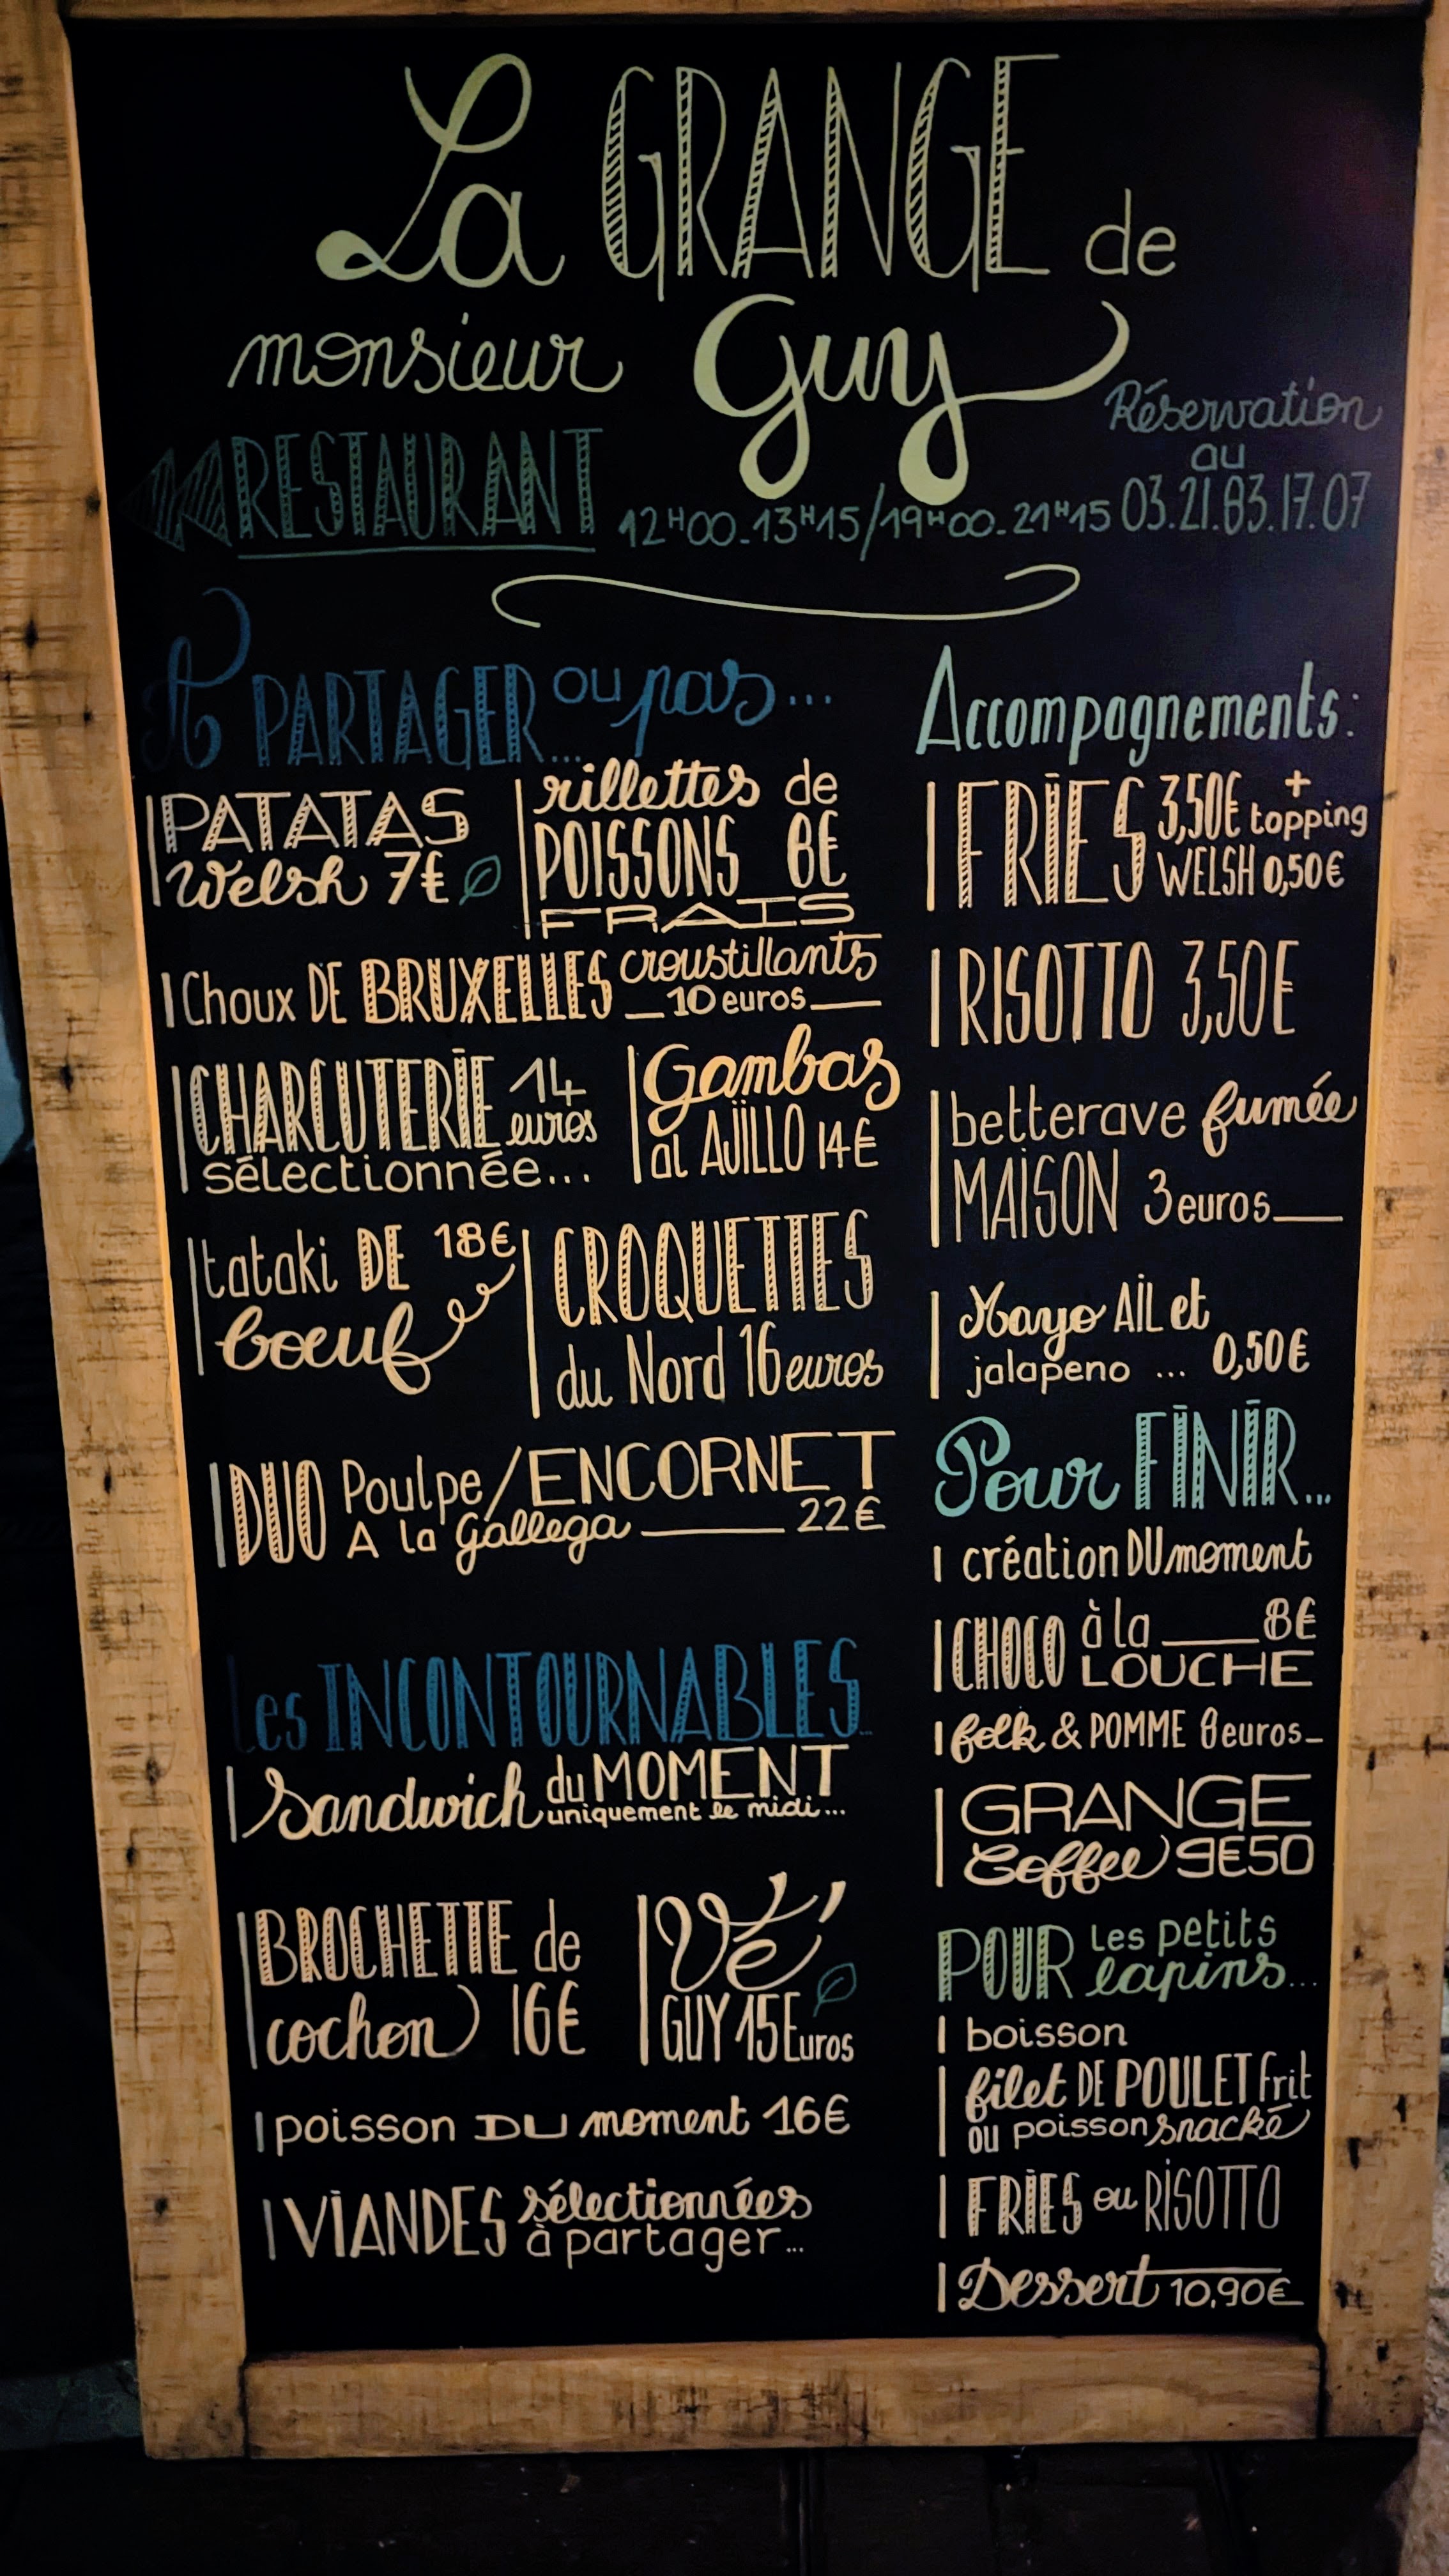 La GRANGE de
monsieur Guy
RESTAURANT 12H00-13H15/19H00-21H15
Réservation
au
03.21.83.17.07
A PARTAGER... ou pas...
PATATAS
Welsh 7€
rillettes de
POISSONS 8€
FRAIS
Choux DE BRUXELLES croustillants
10 euros
CHARCUTERIE 14
euros
sélectionnée...
Gambas
al AJILLO 14€
tataki DE 18€
boeuf
CROQUETTES
du Nord 16 euros
DUO Poulpe/ENCORNET
A la Gallega 22€
Les INCONTOURNABLES...
Sandwich du MOMENT
uniquement le midi...
BROCHETTE de
cochon 16€
Vé'
GUY 15 Euros
poisson DU moment 16€
VIANDES sélectionnées
à partager...
Accompagnements:
FRIES 3,50€ +
topping
WELSH 0,50€
RISOTTO 3,50€
betterave fumée
MAISON 3 euros
Mayo AIL et
jalapeno ... 0,50€
Pour FINIR...
création DU moment
CHOCO à la 8€
LOUCHE
folk & POMME 8 euros
GRANGE
Coffee 9€50
POUR les petits
lapins...
boisson
filet DE POULET frit
ou poisson snacké
FRIES ou RISOTTO
Dessert 10,90€